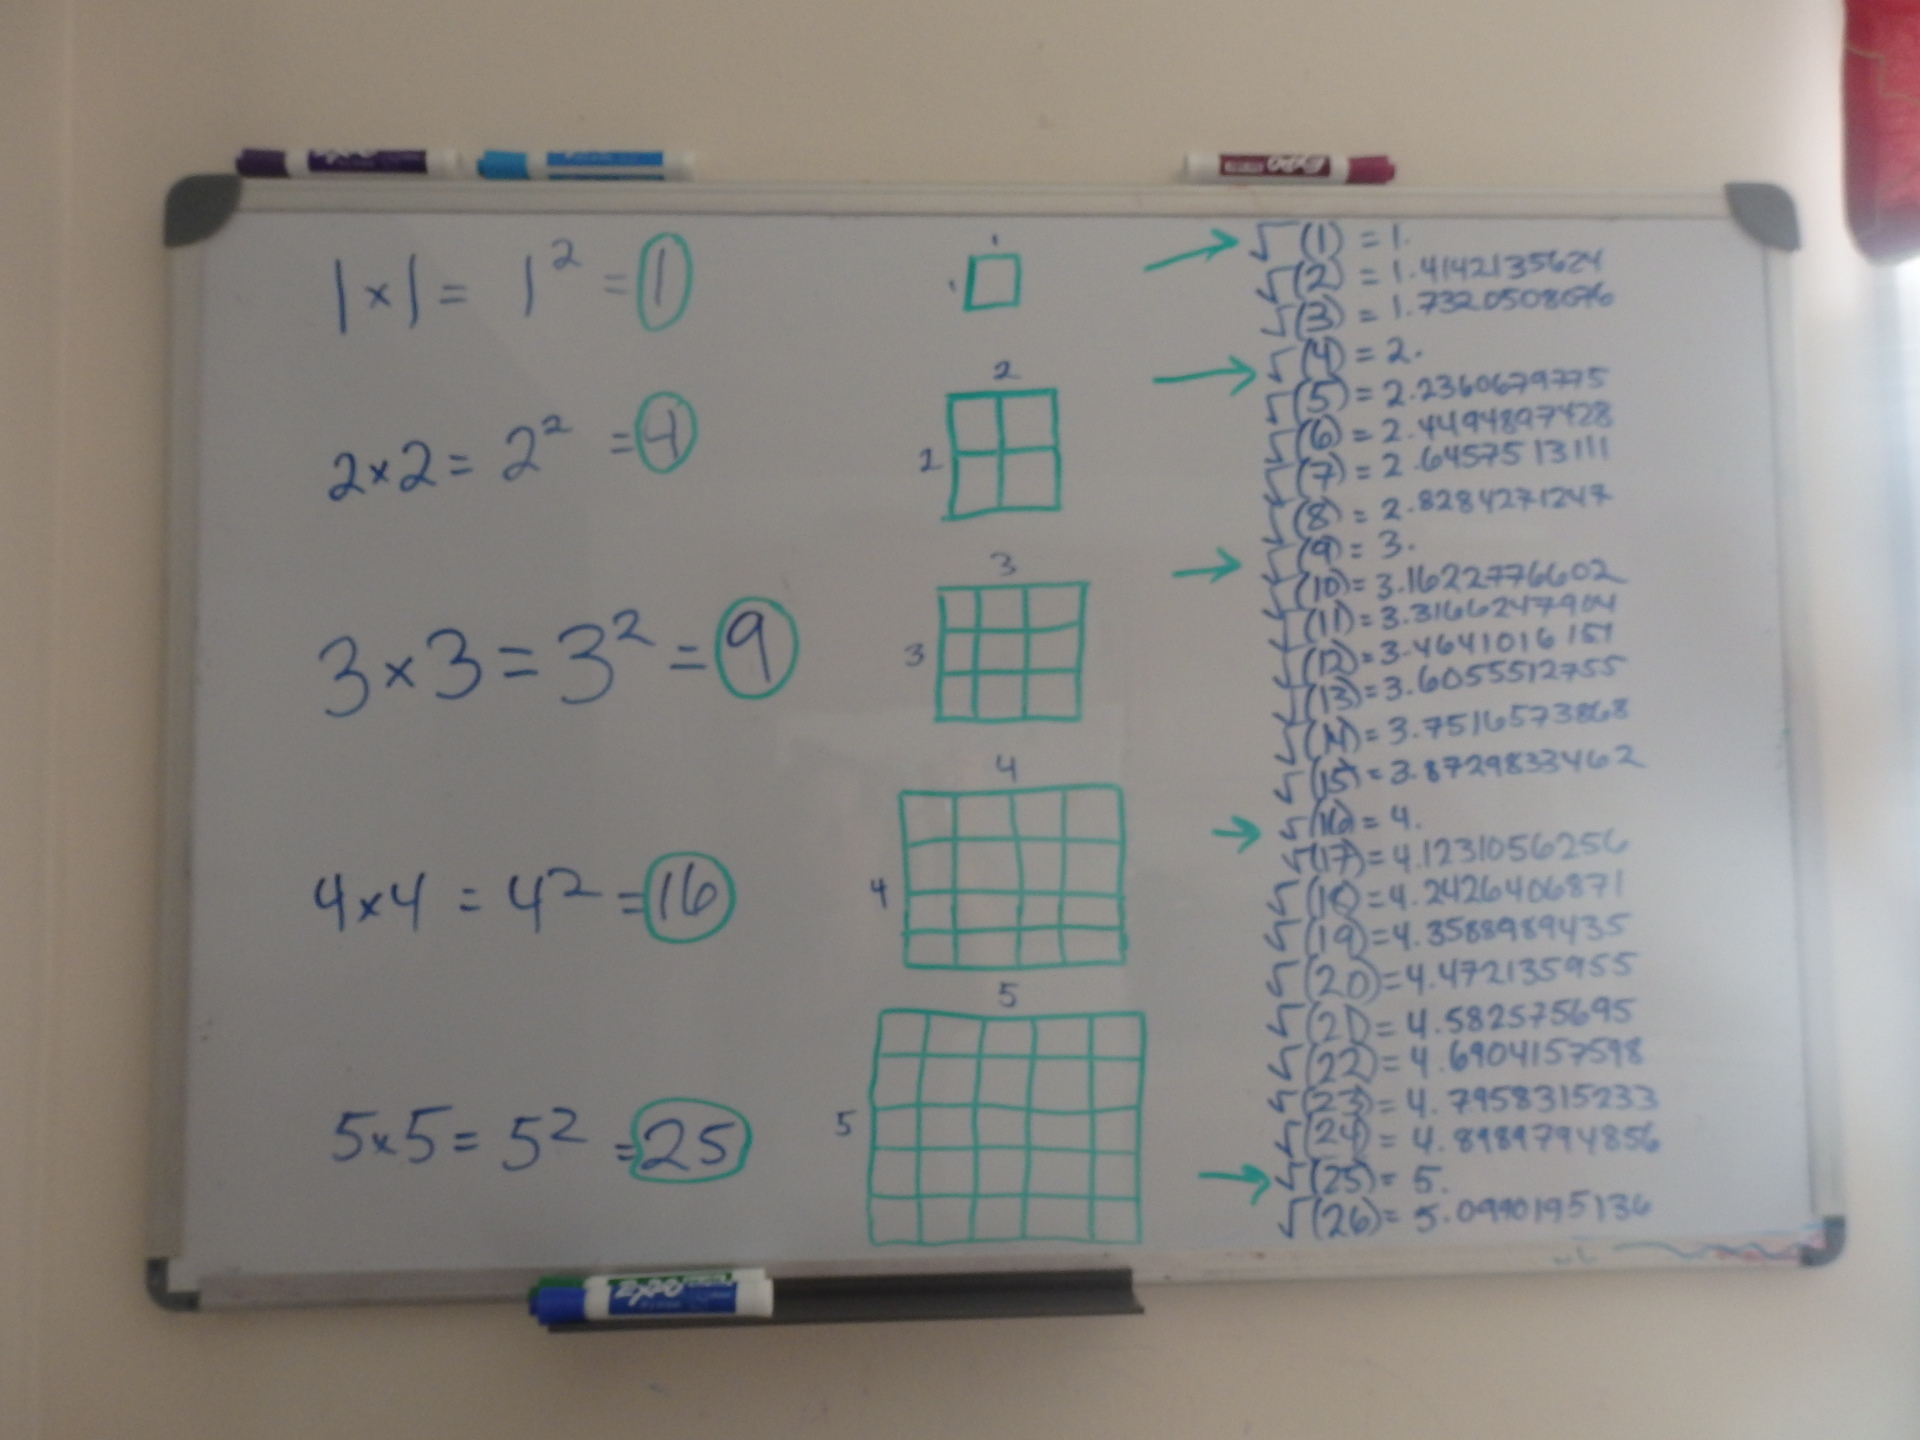 1×1 = 1² = 1
2×2 = 2² = 4
3×3 = 3² = 9
4×4 = 4² = 16
5×5 = 5² = 25
1
1
2
2
3
3
4
4
5
5
√(1) = 1.
√(2) = 1.4142135624
√(3) = 1.7320508076
√(4) = 2.
√(5) = 2.2360679775
√(6) = 2.4494897428
√(7) = 2.6457513111
√(8) = 2.8284271247
√(9) = 3.
√(10) = 3.1622776602
√(11) = 3.3166247904
√(12) = 3.4641016151
√(13) = 3.6055512755
√(14) = 3.7516573868
√(15) = 3.8729833462
√(16) = 4.
√(17) = 4.1231056256
√(18) = 4.2426406871
√(19) = 4.3588989435
√(20) = 4.472135955
√(21) = 4.582575695
√(22) = 4.6904157598
√(23) = 4.7958315233
√(24) = 4.8989794856
√(25) = 5.
√(26) = 5.0990195136
EXPO
EXPO